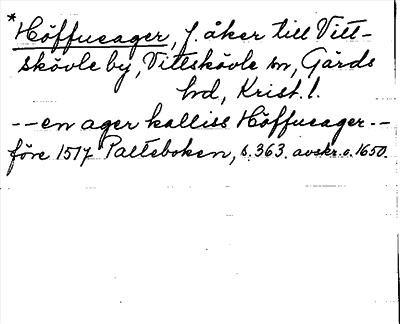 *Höffueager, f. åker till Vitt-
skövle by, Vittskövle sn, Gärds
hd, Krist. l.
-- en ager kalliss Höffueager --
före 1517 Palteboken, s. 363. avskr. o. 1650.